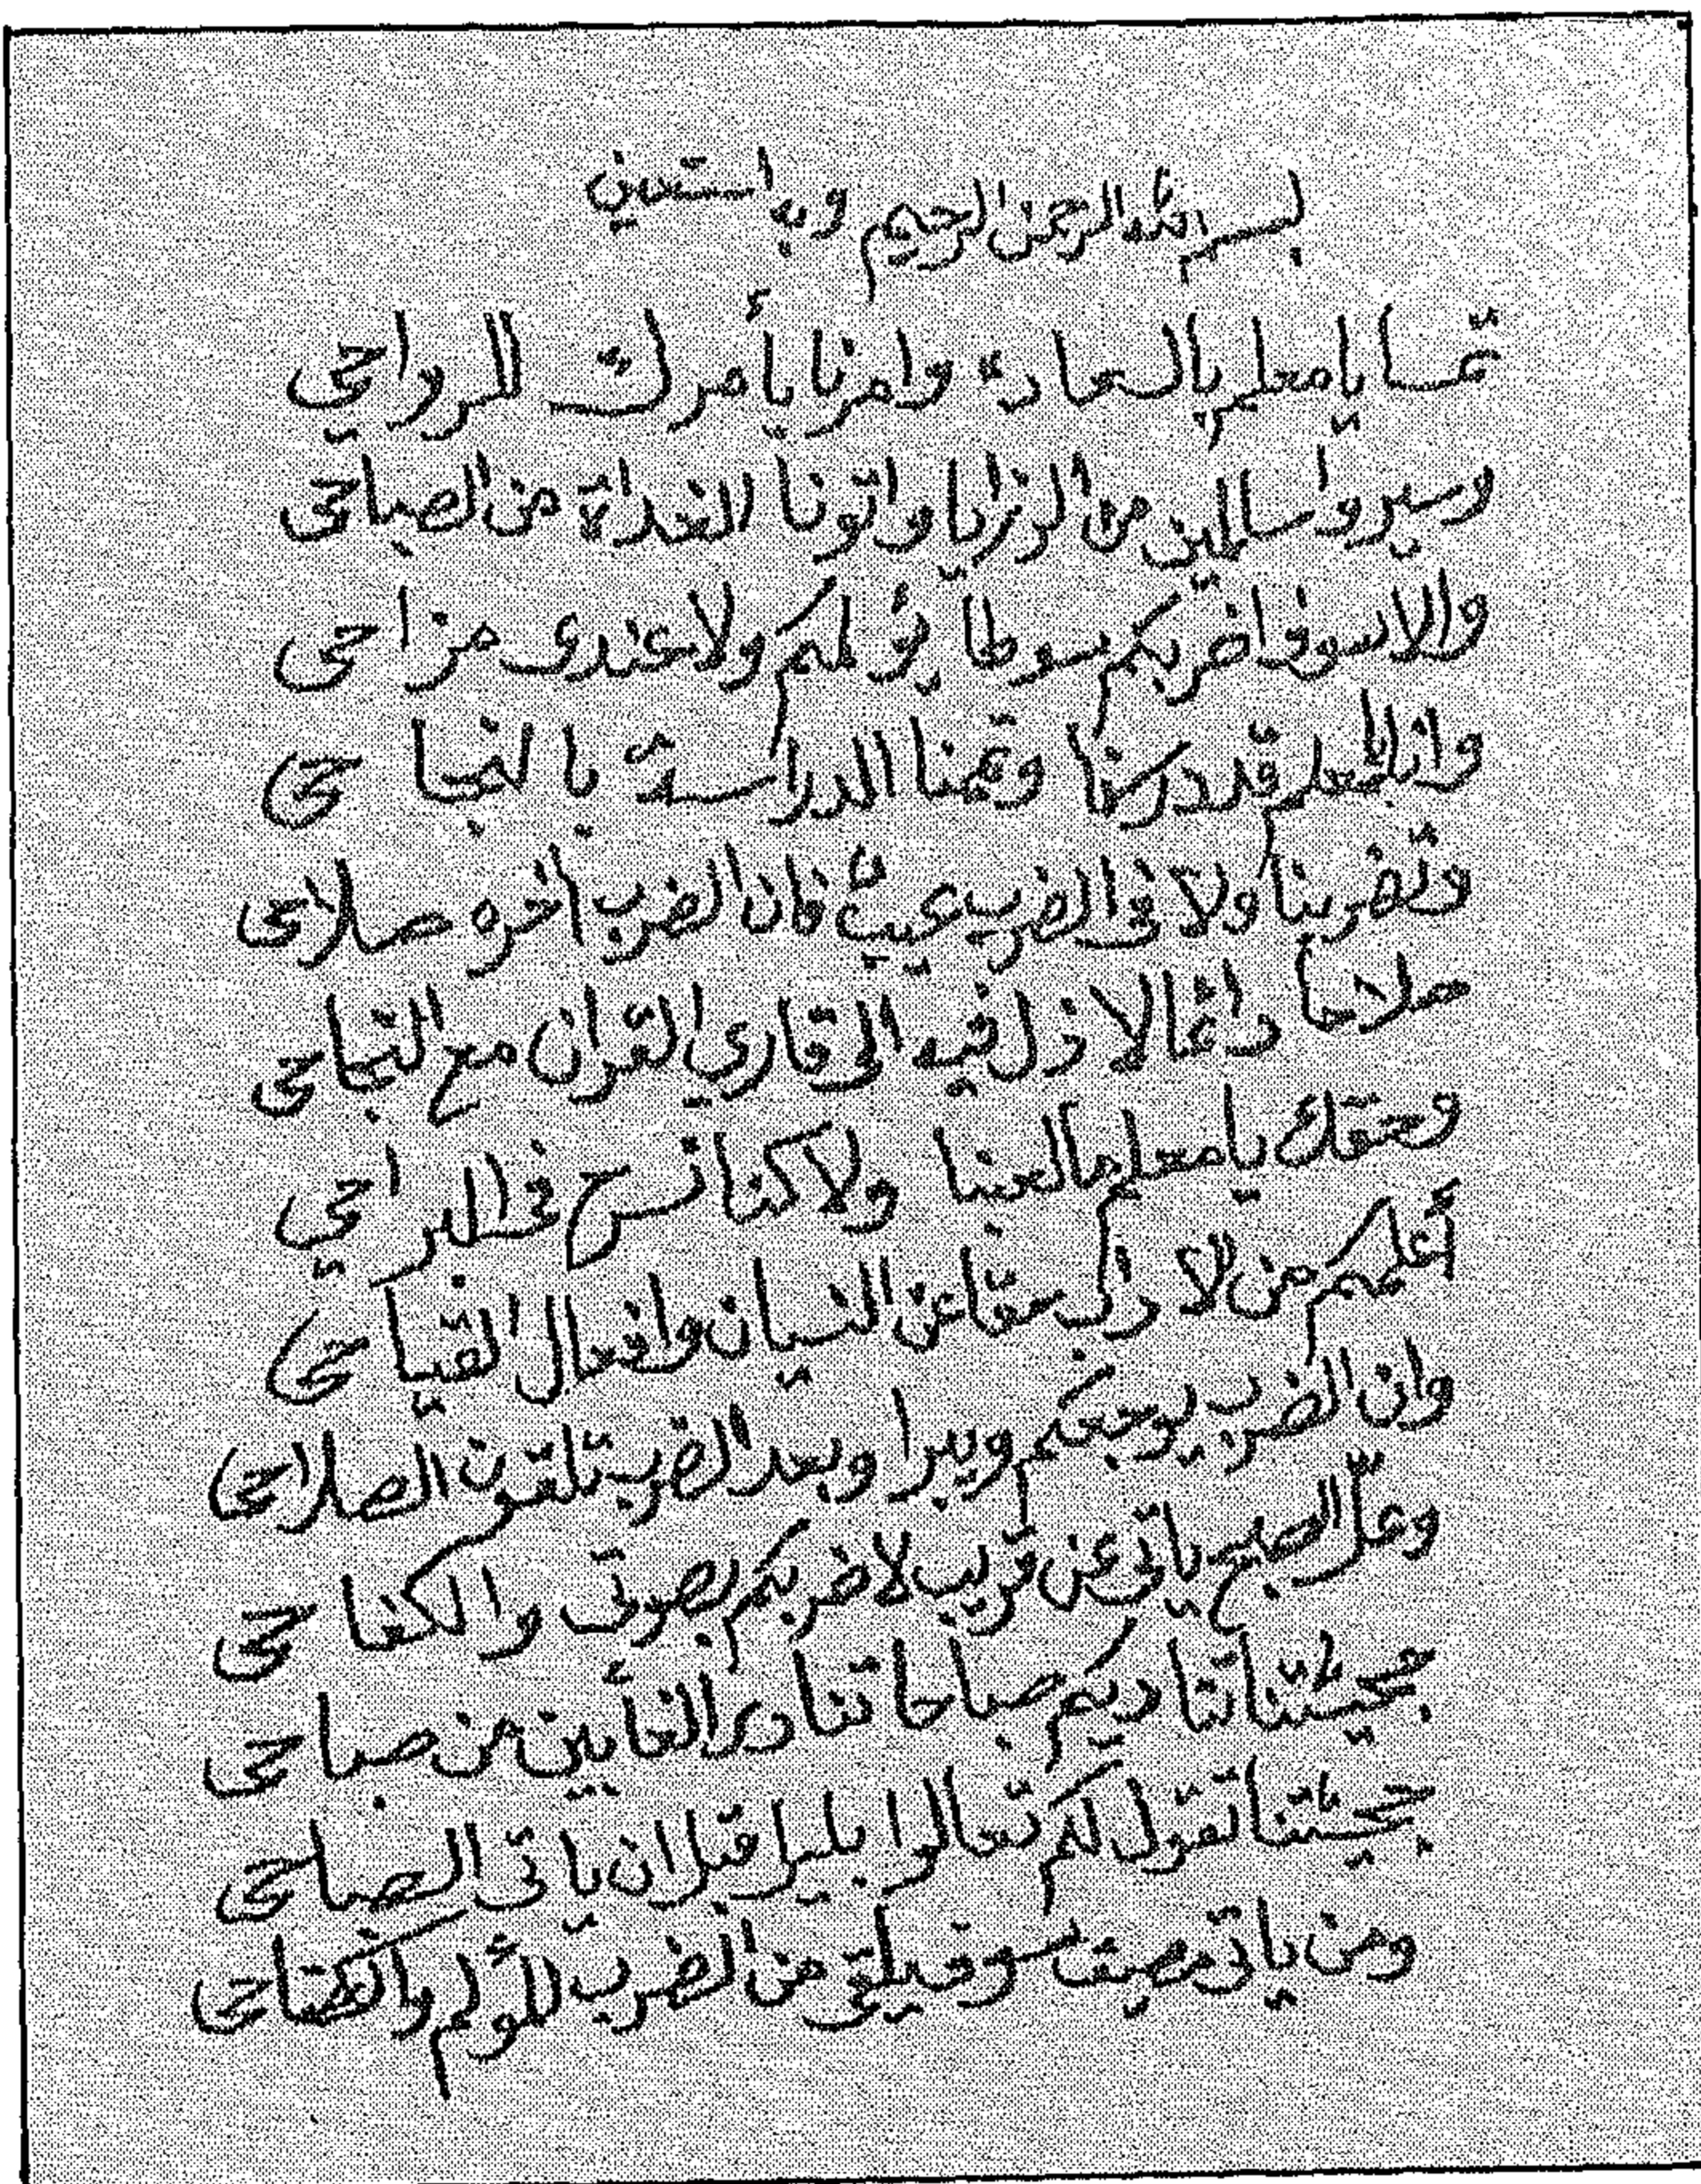 بسم الله الرحمن الرحيم وبه استعين
تمسا يا معلم بالسعادة وامرنا يأمرك للرواحي
وسيروا سالمين من الرزايا واتونا الغداة من الصباحي
والا سوف اضربكم بسوطا يؤلمكم ولا عندي مزاحي
وانا يا معلم قد درسنا وتممنا الدراسة با لنجا حي
وتضربنا ولا في الضرب عيب فان الضرب آخره صلاحي
صلاحا دائما لا ذل فيه الى قاري القران مع النجاحي
وحقك يا معلم ما لعبنا ولا كنا نسرح في البراحي
أعليكم من لا ذاك حقا عن النسيان وافعال القبا حي
وان الضرب يوجعكم ويبرا وبعد الضرب تلقون الصلاحي
وعلّ الصبح ياتي عن قريب لاضربكم بصوتى والكفا حي
بجيتنا تناديكم صباحا تنادى الغأبين من صباحي
بجيتنا تقول لكم تعالوا بليل قبل ان ياتى الصباحي
ومن ياتى مصيف سوف يلقى من الضرب المؤلم والكفاحي